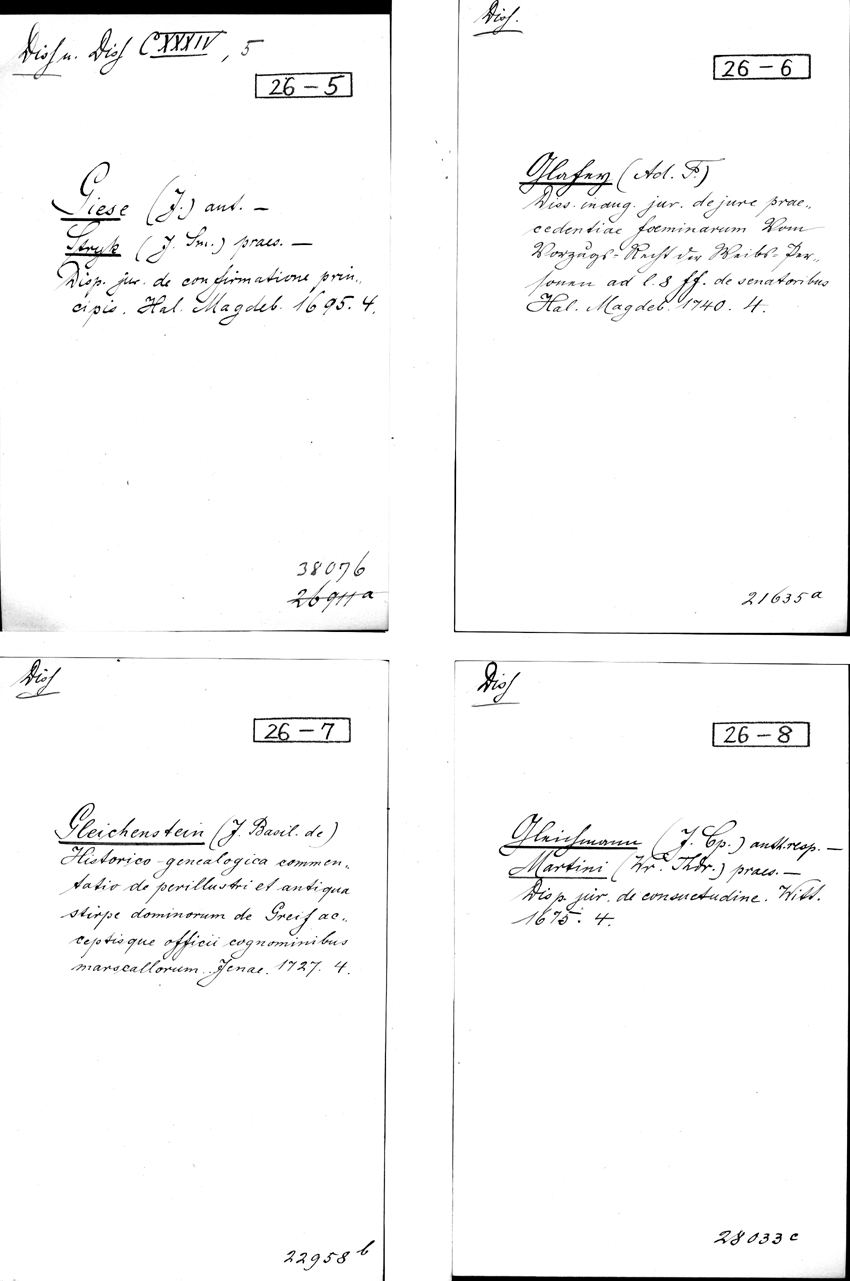 Diss u. Diss CXXXIV, 5
26 – 5
Giese (J.) aut. –
Stryk (J. Sm.) praes. –
Disp. jur. de confirmatione prin„
cipis. Hal. Magdeb. 1695. 4.
38076
26911a
Diss.
26 – 6
Glafey (Ad. F.)
Diss. inaug. jur. de jure prae„
cedentiae foeminarum Vom
Vorzugs-Recht der Weibs-Per„
sonen ad l. 8 ff. de senatoribus
Hal. Magdeb. 1740. 4.
21635a
Diss
26 – 7
Gleichenstein (J. Basil. de)
Historico-genealogica commen„
tatio de perillustri et antiqua
stirpe dominorum de Greif ac„
ceptisque officii cognominibus
marscallorum. Jenae. 1727. 4.
22958b
Diss
26 – 8
Gleichmann (J. Cp.) auth. resp. –
Martini (Thdr.) praes. –
Disp. jur. de consuetudine. Witt.
1675. 4.
28033c